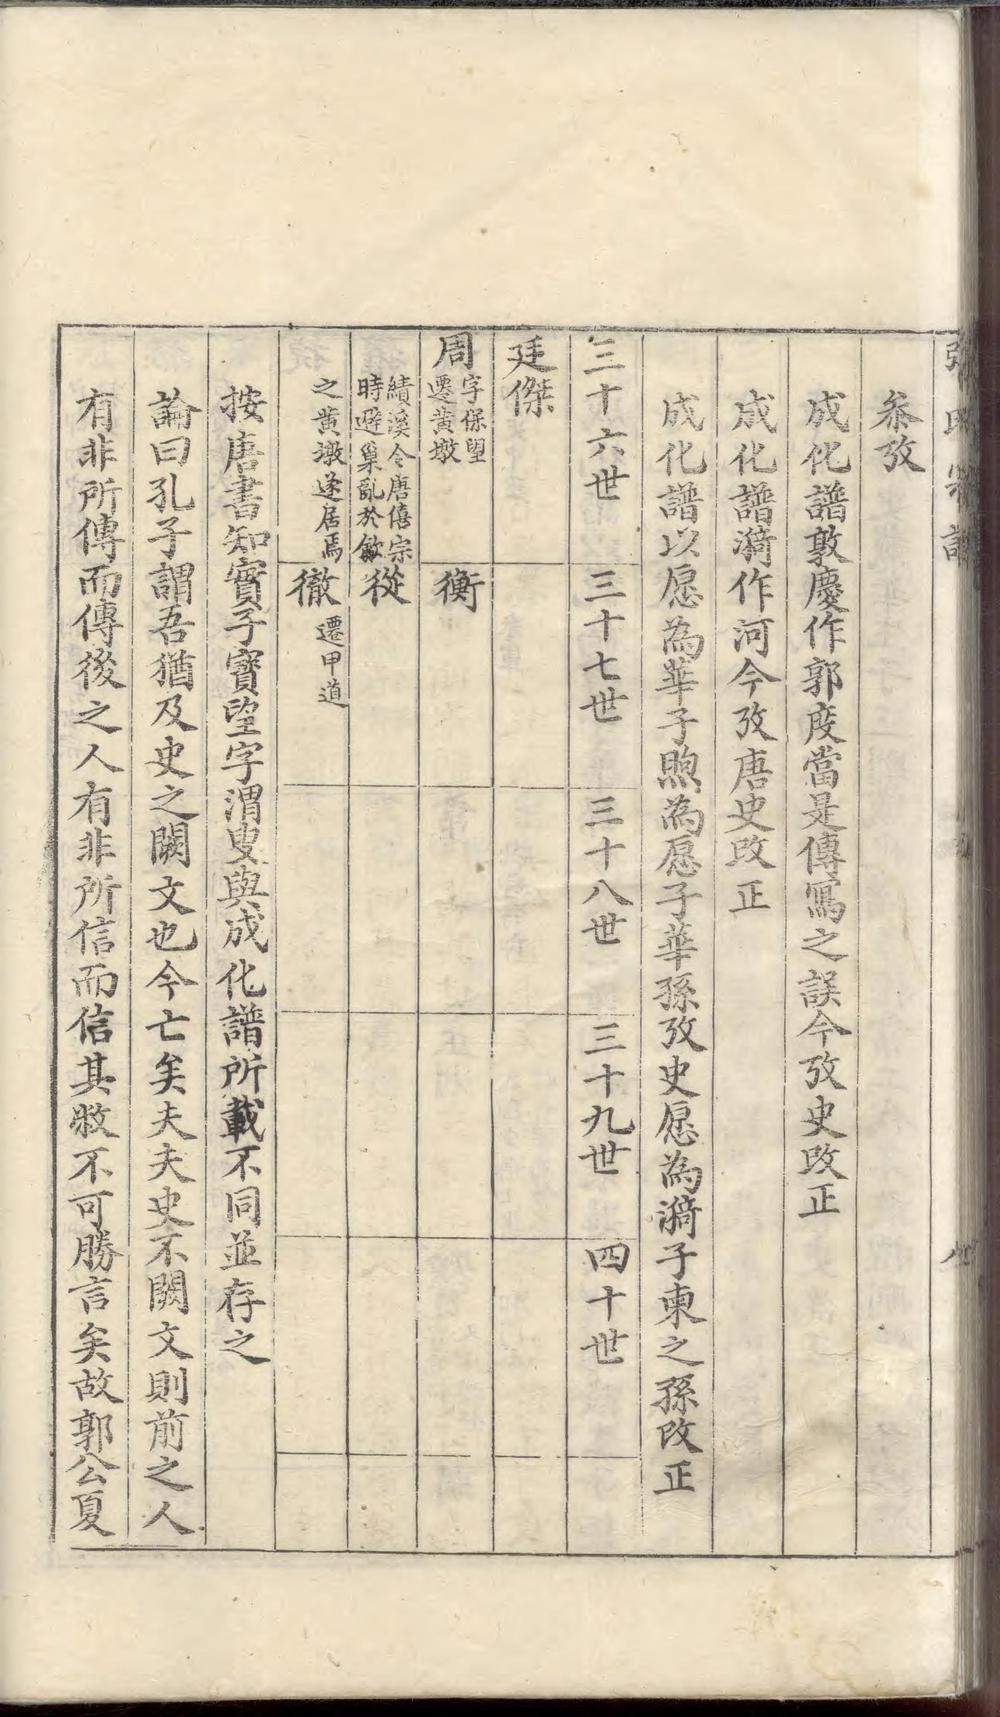 張氏宗譜
叅攷
成化譜敦慶作郭庋當是傳寫之誤今攷史改正
成化譜漪作河今攷唐史改正
成化譜以愿為華子煦為愿子華孫攷史愿為漪子柬之孫改正
三十六世 三十七世 三十八世 三十九世 四十世
廷傑
周 字保望遷黃墩 衡
績溪令唐僖宗時避巢亂於歙 從
之黃墩遂居焉 徹 遷甲道
按唐書知實子寳望字渭叟與成化譜所載不同並存之
論曰孔子謂吾猶及史之闕文也今亡矣夫夫史不闕文則前之人
有非所傳而傳後之人有非所信而信其敝不可勝言矣故郭公夏